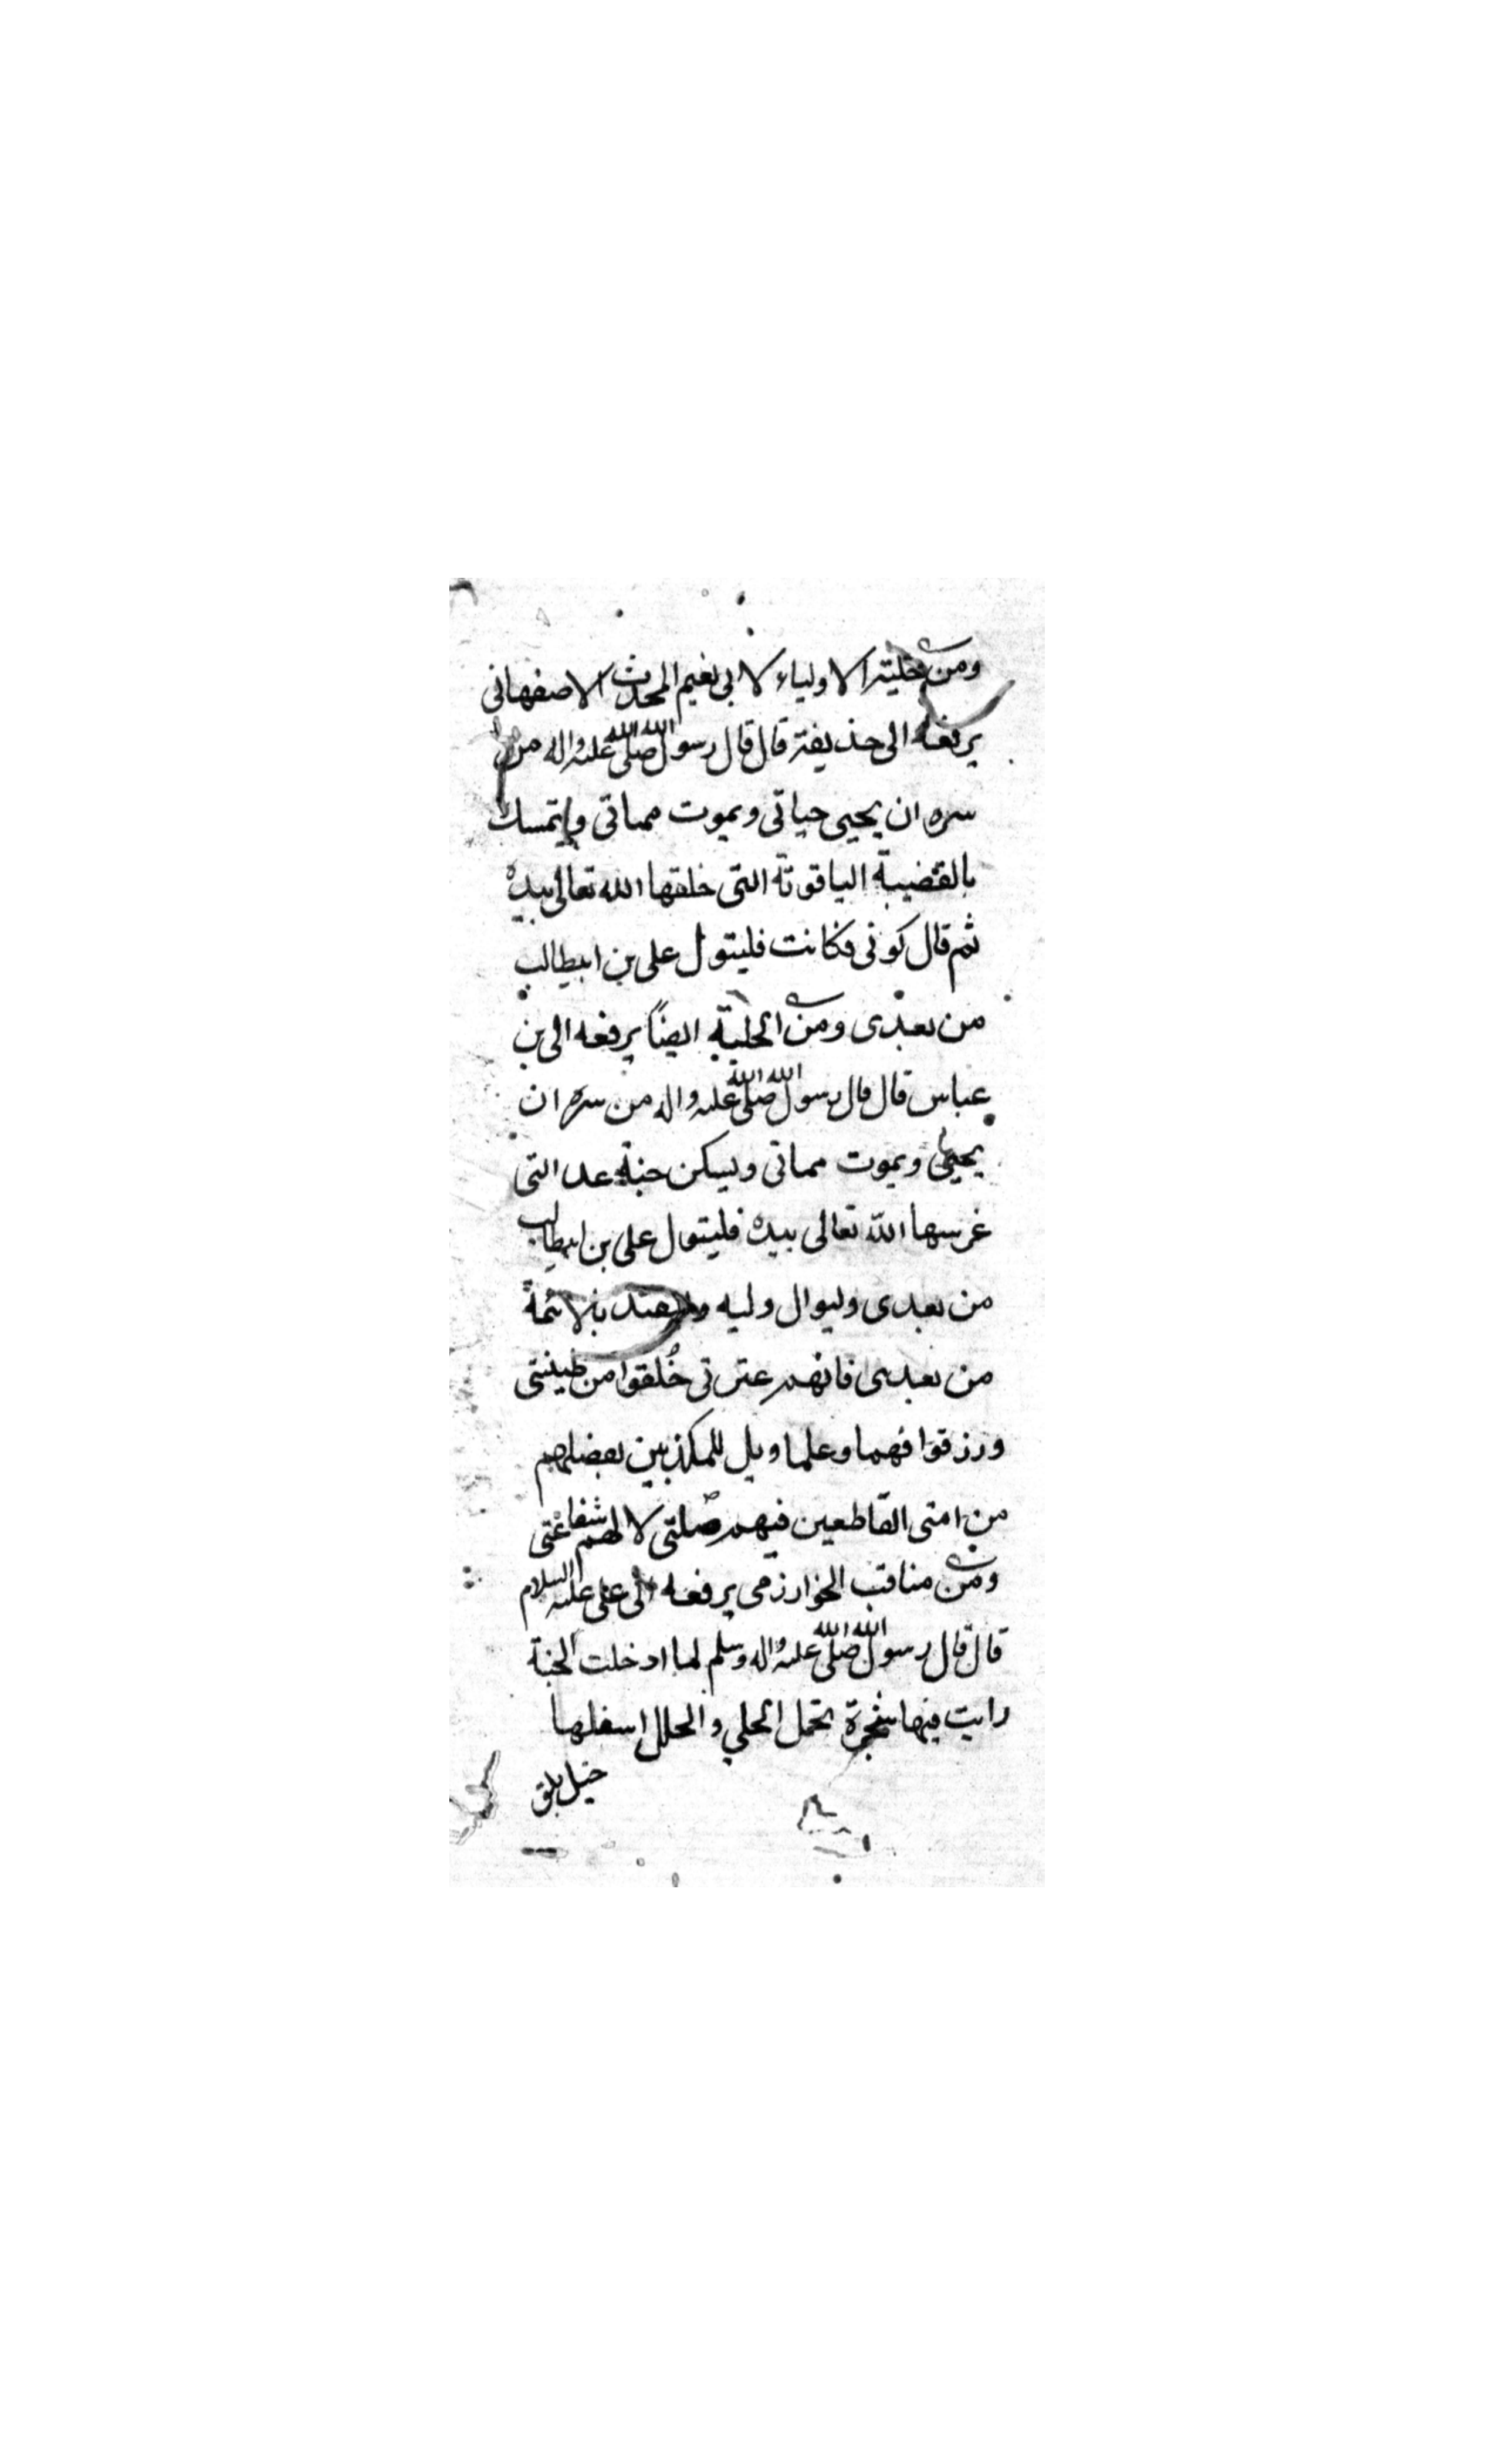 ومن حلية الاولياء لابي نعيم المحدث الاصفهاني
يرفعه الى حذيفة قال قال رسول الله صلى الله عليه واله من
سره ان يحيى حياتي ويموت مماتي ويتمسك
بالقضيبة الياقوتة التى خلقها الله تعالى بيده
ثم قال كونى فكانت فليتول على بن ابيطالب
من بعدى ومن الحلية ايضاً يرفعه الى بن
عباس قال قال رسول الله صلى الله عليه واله من سره ان
يحيى ويموت مماتى ويسكن جنة عدن التى
غرسها الله تعالى بيده فليتول على بن ابيطالب
من بعدى وليوال وليه وليقتد بالائمة
من بعدى فانهم عترتى خُلقوا من طينتى
ورزقوا فهما وعلما ويل للمكذبين بفضلهم
من امتى القاطعين فيهم صلتى لا لهم شفاعتى
ومن مناقب الخوارزمى يرفعه الى على عليه السلام
قال قال رسول الله صلى الله عليه واله وسلم لما ادخلت الجنة
رايت فيها شجرة تحمل الحلي والحلل اسفلها
خيل بلق